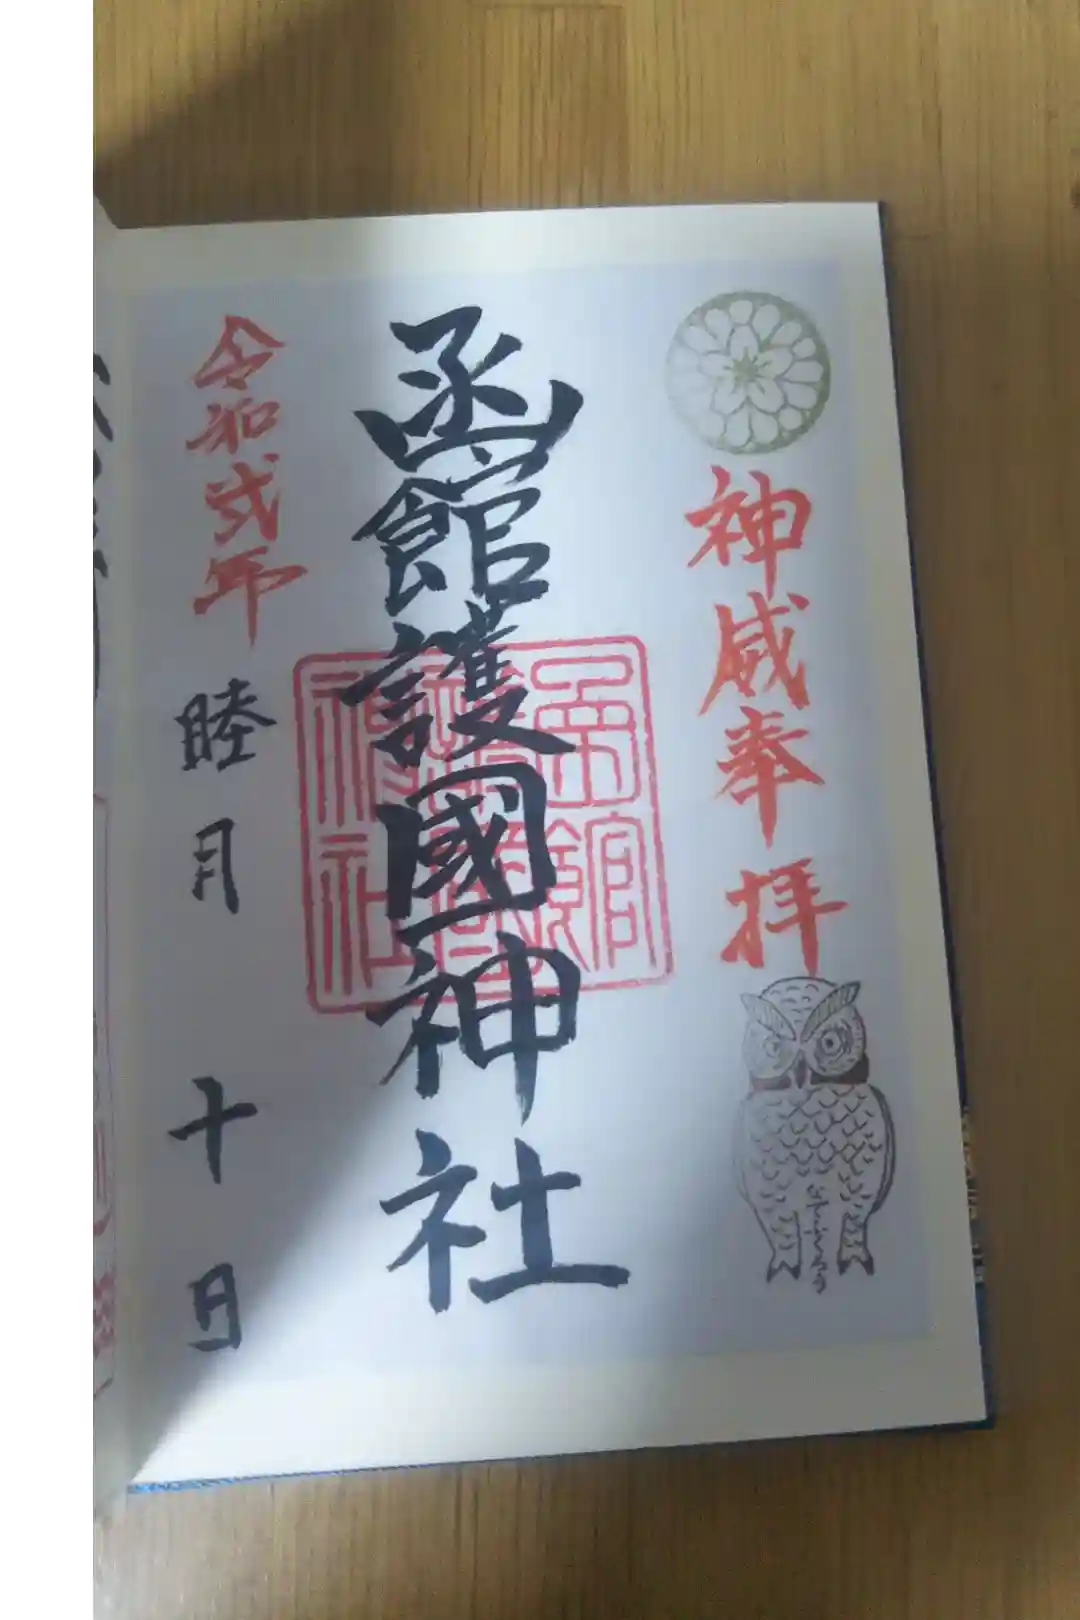 神威奉拝
函館護國神社
函館護國神社
令和弐年
睦月 十日